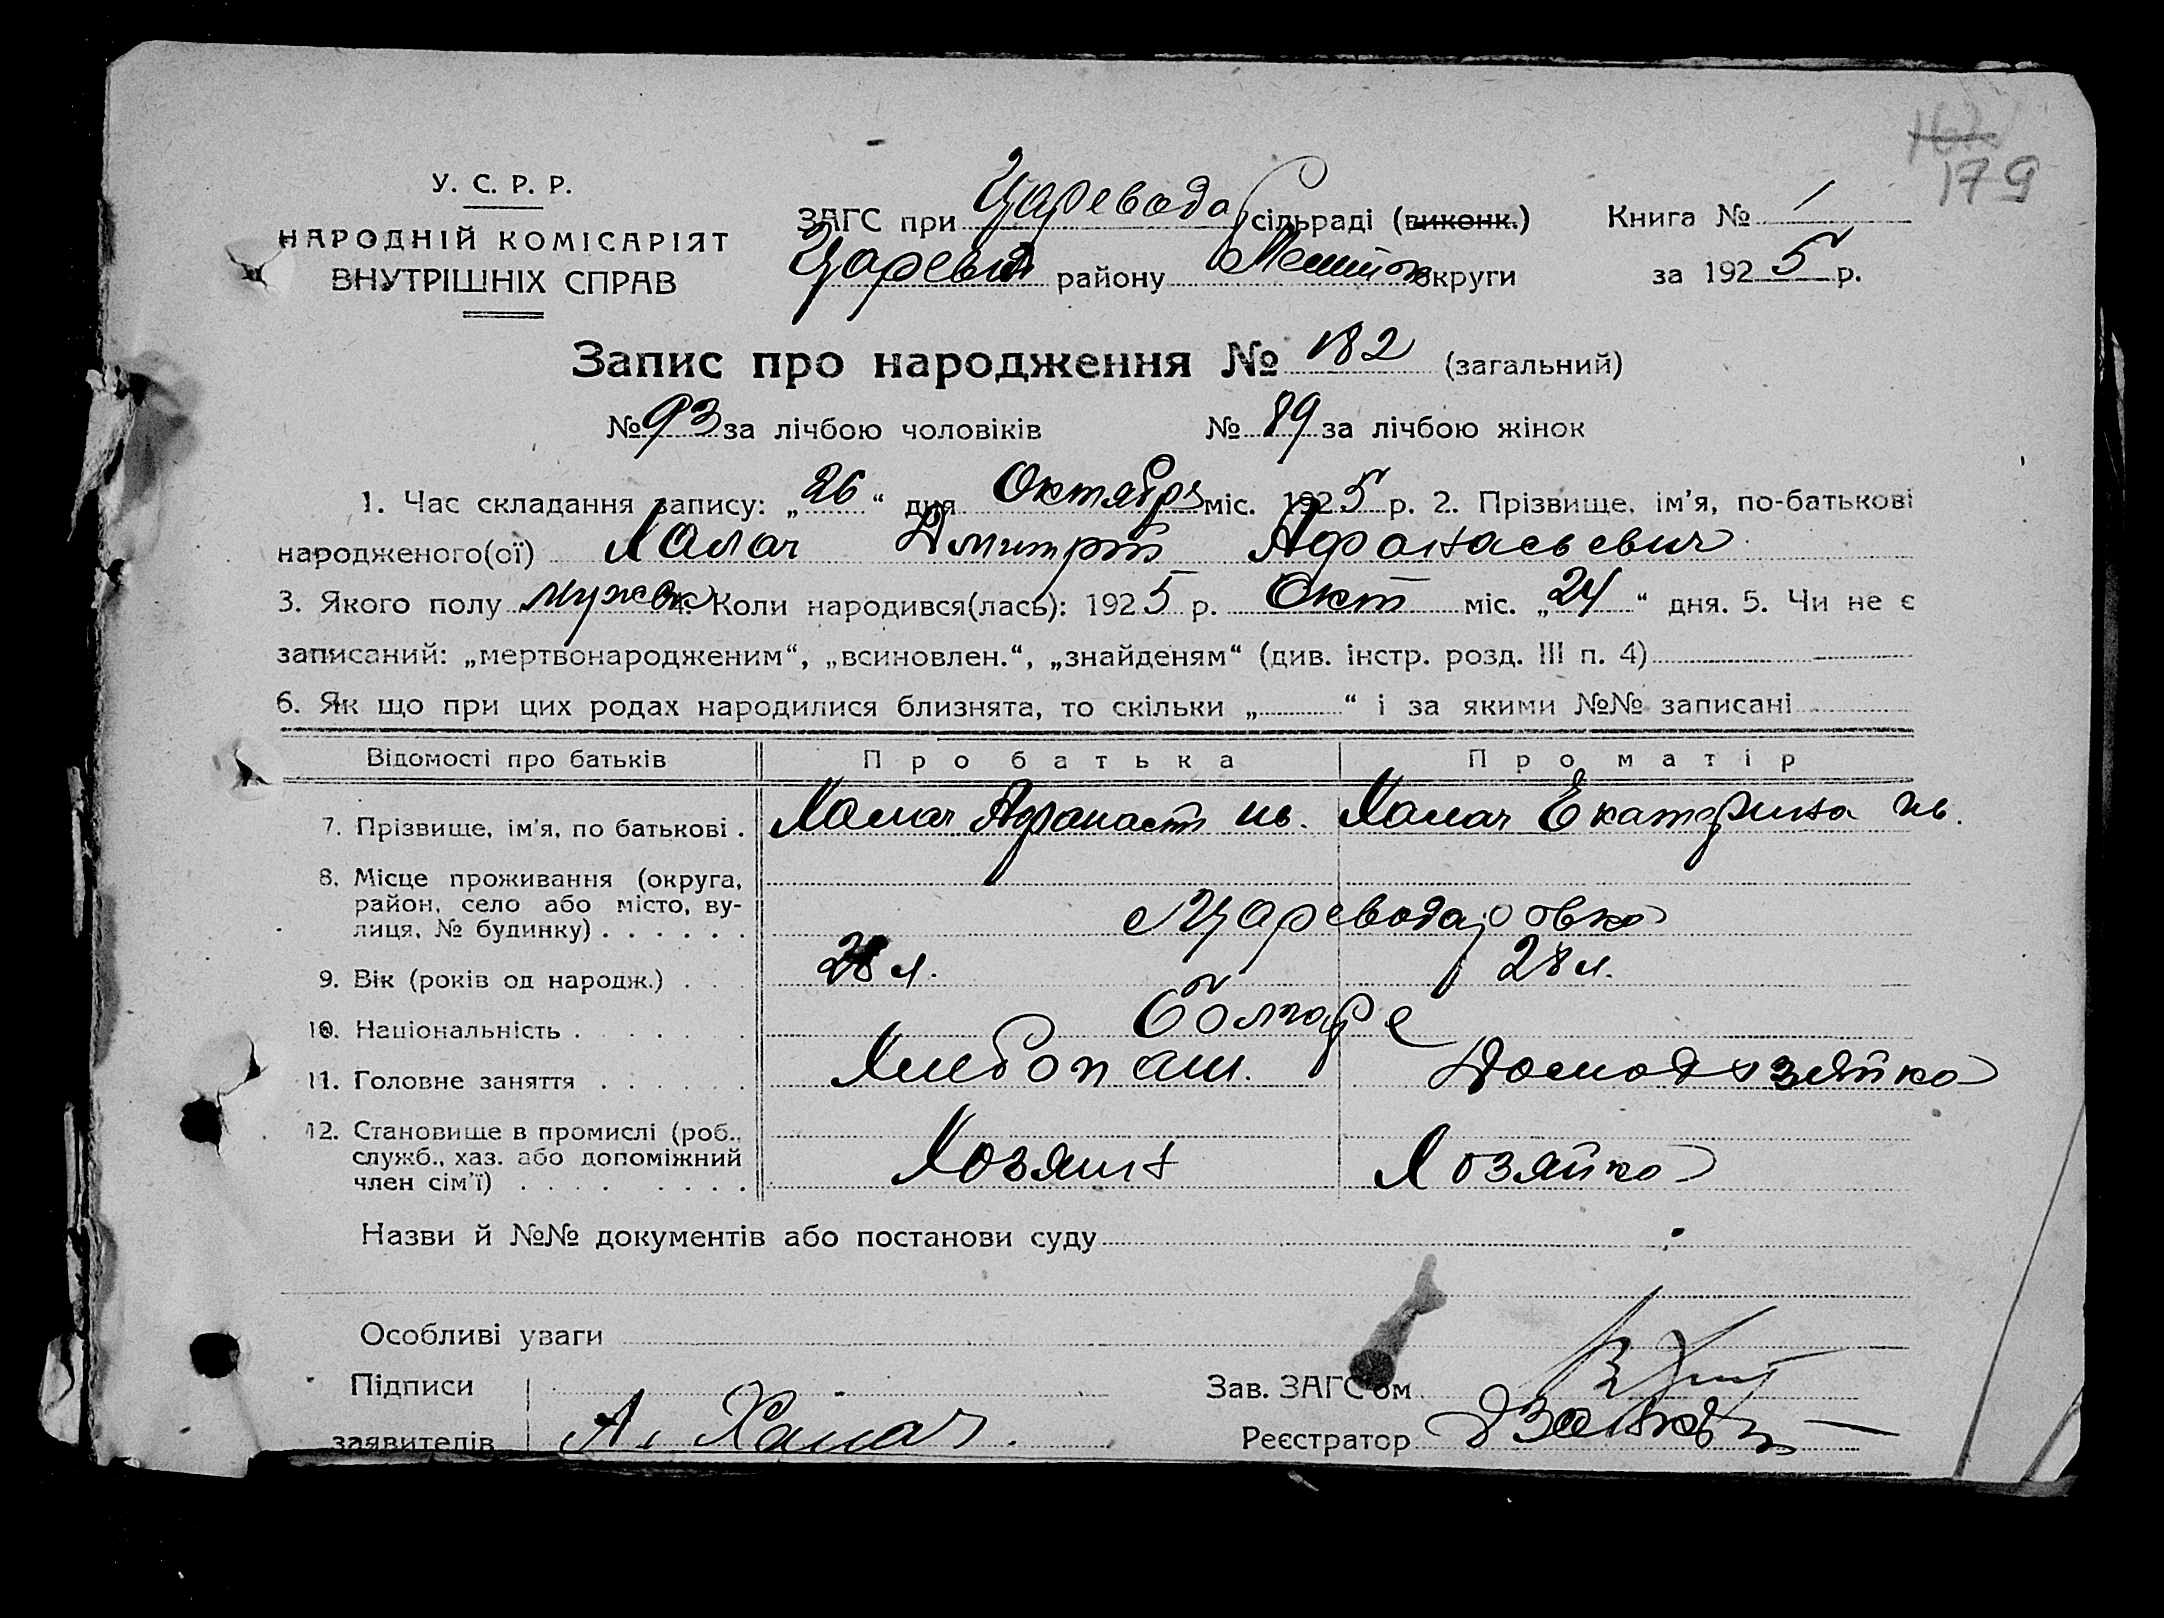 162
179
У. С. Р. Р.
НАРОДНІЙ КОМІСАРІЯТ
ВНУТРІШНІХ СПРАВ
ЗАГС при Царевода сільраді (виконк.) Книга № 1
району округи за 1925 р.
Запис про народження № 182 (загальний)
№ 93 за лічбою чоловіків № 89 за лічбою жінок
1. Час складання запису: „26“ дня Октября міс. 1925 р. 2. Прізвище, ім'я, по-батькові
народженого(ої) Халач Дмитрій Афанасьевич
3. Якого полу мужск 4. Коли народився(лась): 1925 р. Окт міс. „24“ дня. 5. Чи не є
записаний: „мертвонародженим“, „всиновлен.“, „знайденям“ (див. інстр. розд. III п. 4)
6. Як що при цих родах народилися близнята, то скільки „ “ і за якими №№ записані
Відомості про батьків Про батька Про матір
7. Прізвище, ім'я, по батькові . Халач Афанасій Ив. Халач Екатерина Ив.
8. Місце проживання (округа,
район, село або місто, ву-
лиця, № будинку) . . . . . . с Цареводаровка
9. Вік (років од народж.) . . . 28 л. 28 л.
10. Національність . . . . . Болгаре
11. Головне заняття . . . . . . Хлебопаш. Домохозяйка
12. Становище в промислі (роб.,
служб., хаз. або допоміжний
член сім'ї) . . . . . . . . Хозяин Хозяйка
Назви й №№ документів або постанови суду
Особливі уваги
Підписи Зав. ЗАГС'ом
заявителів А. Халач. Реєстратор